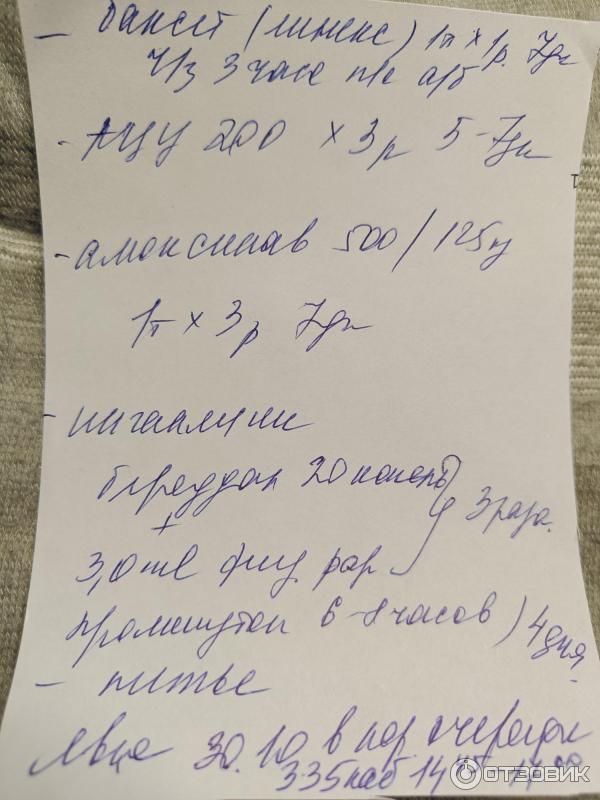 - бактст (линекс) 1т х 1р. 7дн
ч/з 3 часа п/е а/б
- АЦЦ 200 х 3р 5-7дн
- амоксиклав 500/125мг
1т х 3р 7дн
- ингаляции
беродуал 20 капель
+ 3 раза.
3,0 мл физ рар
промежуток 6-8 часов) 4 дня.
- питье
явка 30.10 в пор очереди
335 каб 14 17⁰⁰
ОТЗОВИК